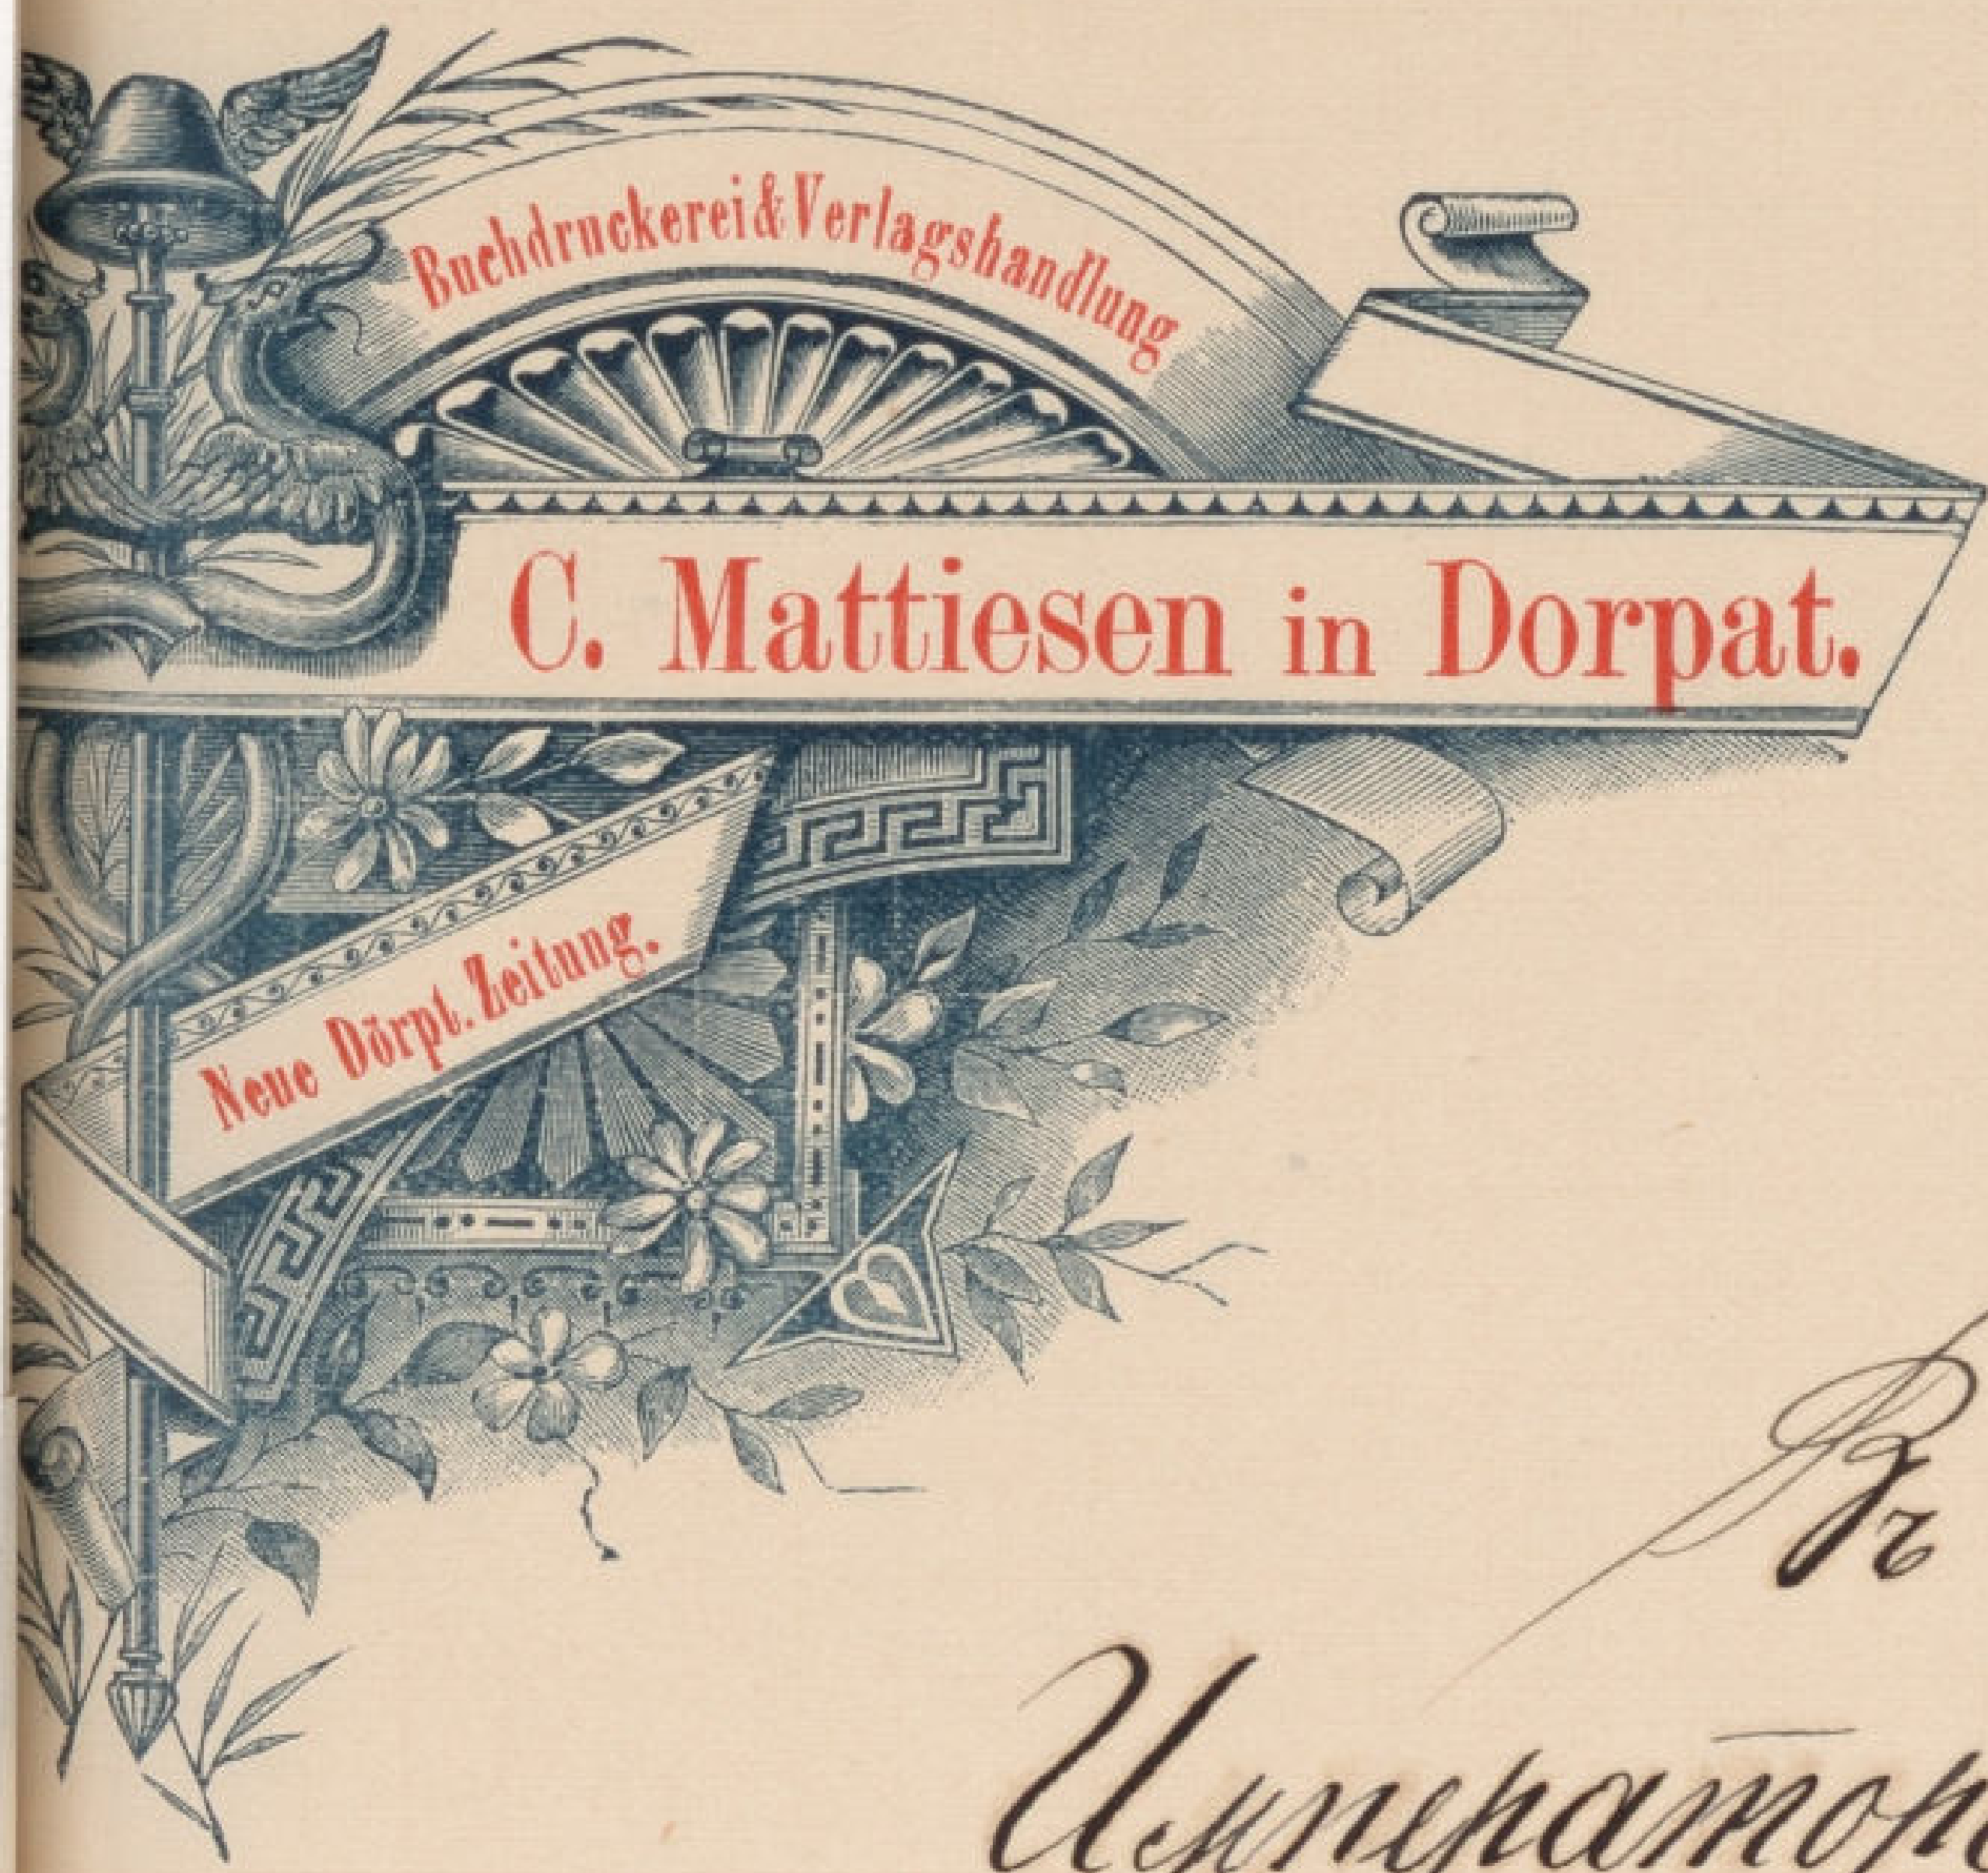 Buchdruckerei & Verlagshandlung
C. Mattiesen in Dorpat.
Neue Dörpt. Zeitung.
Въ
Император